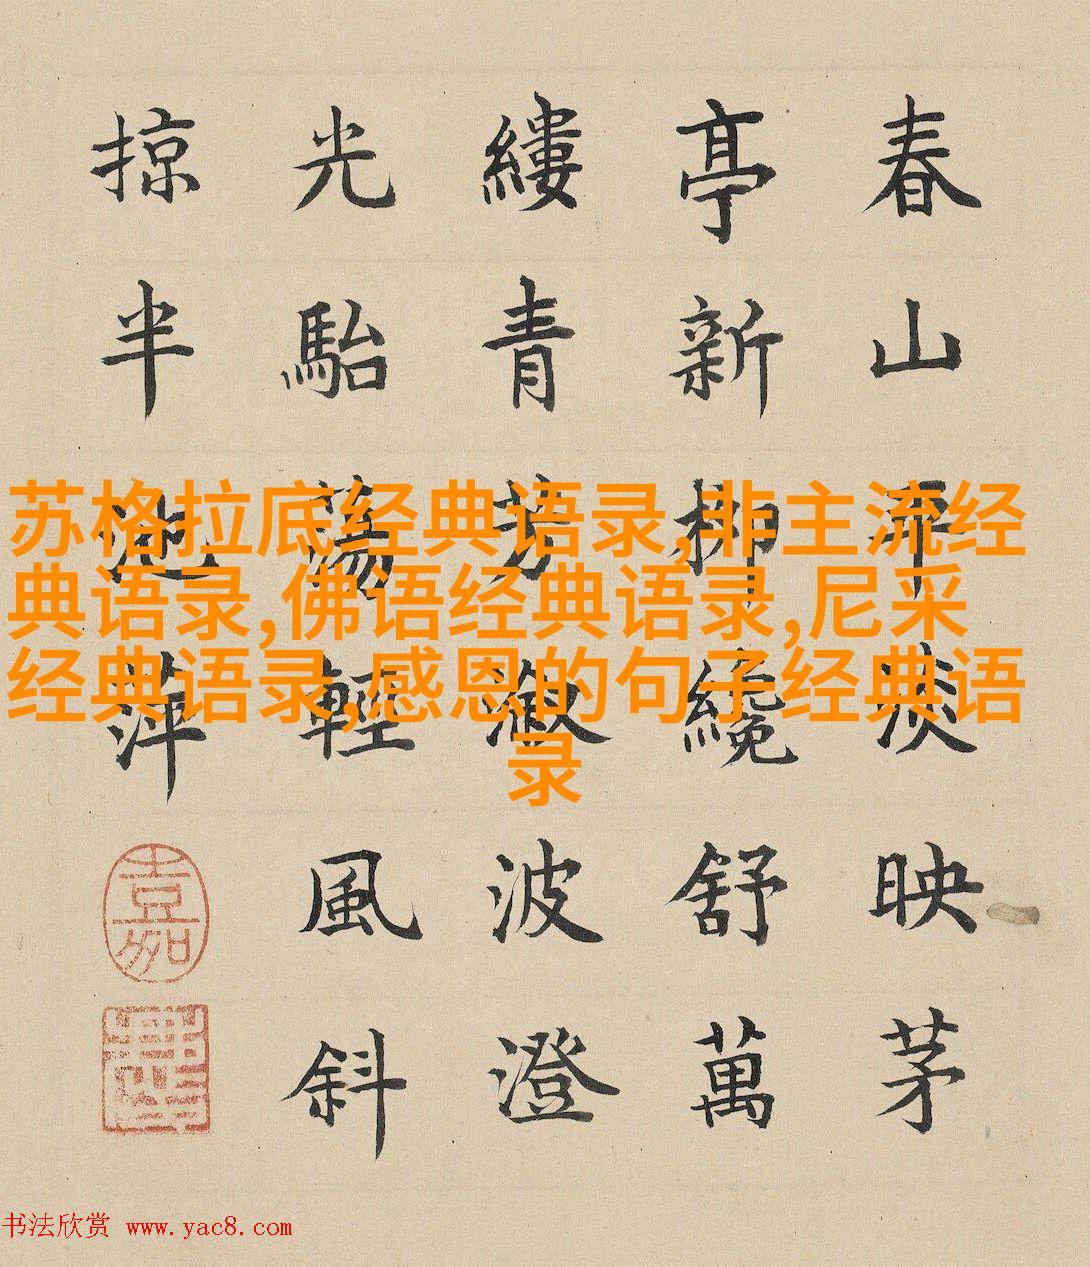 春山平淡映茅
亭新柳纔舒萬
縷青芳漵波澄
光駘蕩輕風斜
掠半池萍
嘉
苏格拉底经典语录,非主流经
典语录,佛语经典语录,尼采
经典语录,感恩的句子经典语
录
书法欣赏 www.yac8.com